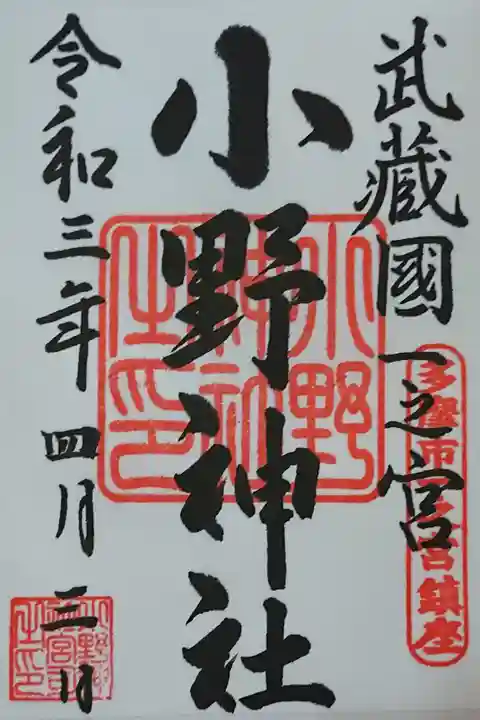 武蔵國一之宮
多摩市一之宮鎮座
小野神社
小野神社之印
令和三年四月三日